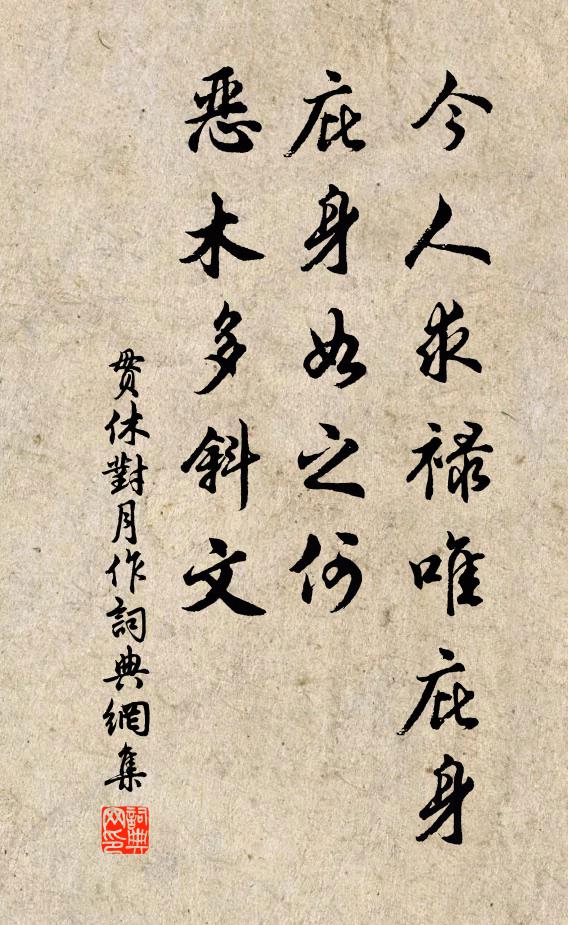 今人求禄唯庇身
庇身如之何
恶木多斜文
贯休對月作詞典網集
詞典
网印